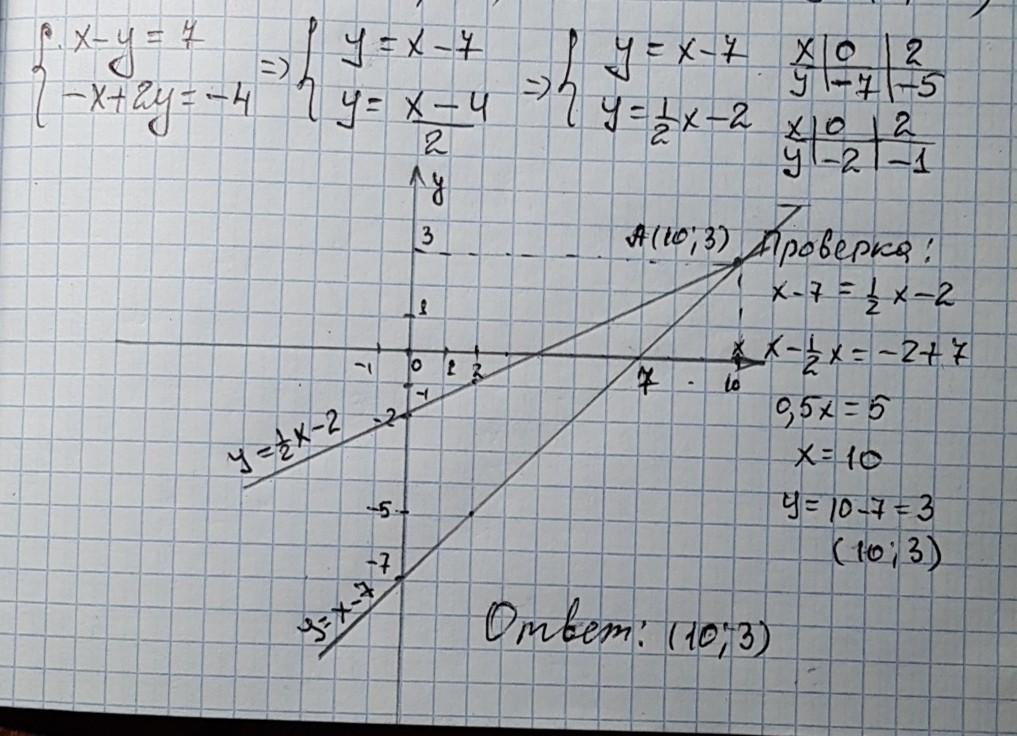 { x-y=7 => { y=x-7 => { y=x-7
-x+2y=-4 y=x-4/2 y=1/2x-2
x | 0 | 2
y | -7 | -5
x | 0 | 2
y | -2 | -1
y
3
1
-1 0 1 2 7 10 x
-1
-2
-5
-7
A(10;3)
y=1/2x-2
y=x-7
Проверка:
x-7=1/2x-2
x-1/2x=-2+7
0,5x=5
x=10
y=10-7=3
(10;3)
Ответ: (10;3)